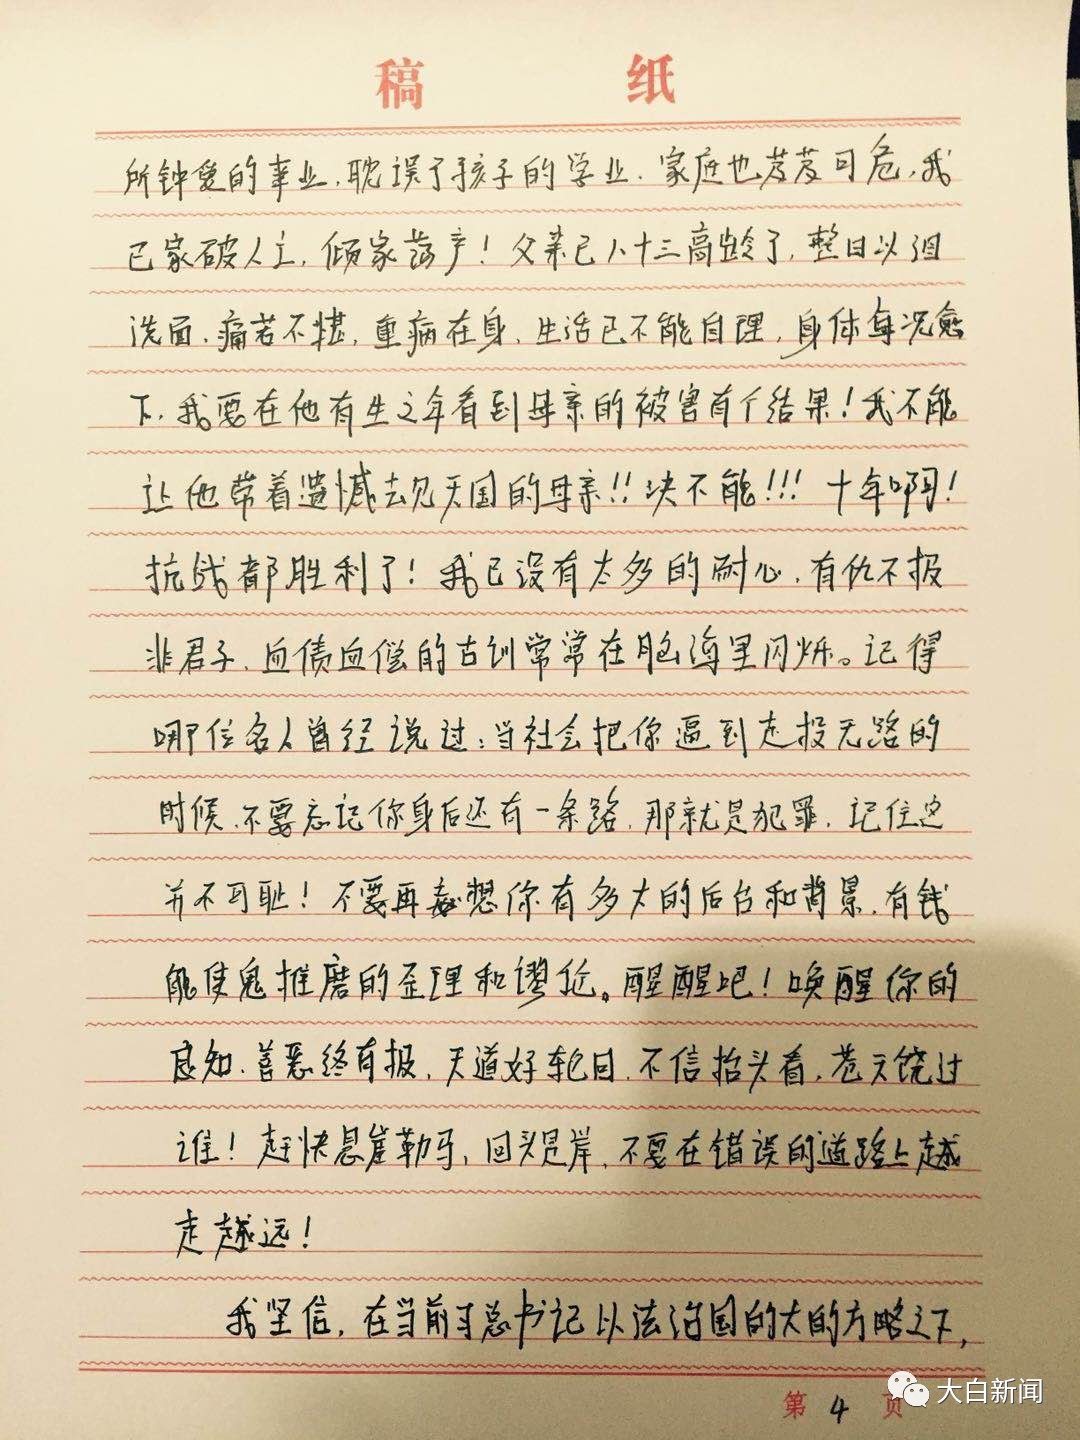 稿 纸
所钟爱的事业，耽误了孩子的学业，家庭也岌岌可危，我
已家破人亡，倾家荡产！父亲已八十三高龄了，整日以泪
洗面，痛苦不堪，重病在身，生活已不能自理，身体每况愈
下，我要在他有生之年看到母亲的被害有个结果！我不能
让他带着遗憾去见天国的母亲!!决不能!!!十年啊！
抗战都胜利了！我已没有太多的耐心，有仇不报
非君子，血债血偿的古训常常在脑海里闪烁。记得
哪位名人曾经说过：当社会把你逼到走投无路的
时候，不要忘记你身后还有一条路，那就是犯罪，记住这
并不可耻！不要再妄想你有多大的后台和背景，有钱
能使鬼推磨的歪理和谬论。醒醒吧！唤醒你的
良知，善恶终有报，天道好轮回，不信抬头看，苍天饶过
谁！赶快悬崖勒马，回头是岸，不要在错误的道路上越
走越远！
我坚信，在当前习总书记以法治国的大的方略之下，
大白新闻
第 4 页